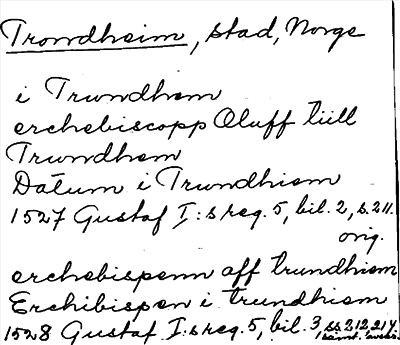 Trondheim, stad, Norge
i Trundhem
erchebiscopp Oluff tiill
Trundhem
Datum i Trundhiem
1527 Gustaf I:s reg. 5, bil. 2, s. 211.
orig.
erchebispenn aff trundhiem
Erchibispen i trundhiem
1528 Gustaf I:s reg. 5, bil. 3, ss 212, 214
samt.